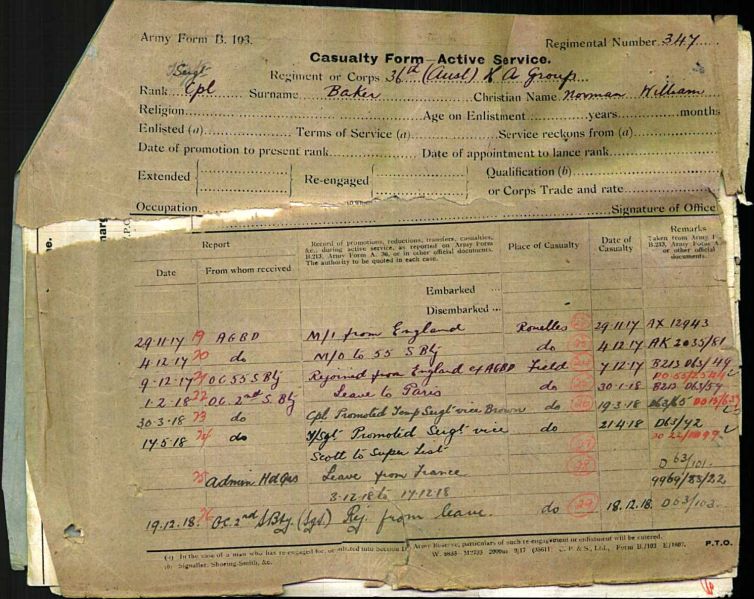 Army Form B. 103.
Regimental Number 347
Casualty Form—Active Service.
Regiment or Corps 36th (Aust) H A Group
Sergt
Rank Cpl Surname Baker Christian Name Norman William
Religion Age on Enlistment years months
Enlisted (a) Terms of Service (a) Service reckons from (a)
Date of promotion to present rank Date of appointment to lance rank
Extended Re-engaged Qualification (b)
or Corps Trade and rate
Occupation Signature of Office
Report
Date From whom received
Record of promotions, reductions, transfers, casualties, &c., during active service, as reported on Army Form B.213, Army Form A. 36, or in other official documents. The authority to be quoted in each case.
Place of Casualty
Date of Casualty
Remarks
Taken from Army F
B.213, Army Form A
or other official documents.
Embarked
Disembarked
29.11.17 19 AGBD M/I from England Rouelles 29.11.17 AX 12943
4.12.17 20 do M/O to 55 S Bty do 4.12.17 AK 2035/81
9.12.17 21 OC 55 S Bty Rejoined from England of AGBD Field 7.12.17 B213 D63/49
1.2.18 22 O.C. 2nd S. Bty Leave to Paris do 30.1.18 B213 D63/54
30.3.18 23 do Cpl Promoted Temp Sergt vice Brown do 19.3.18 D63/65
17.5.18 24 do T/Sgt Promoted Sergt vice do 21.4.18 D63/72
Scott to Super List
25 Admin Hdqrs Leave from France D 63/101.
3.12.18 to 17.12.18 9969/83/22
19.12.18. 26 O.C. 2nd S Bty. (Sgt.) Rej. from leave. do 18.12.18 D63/103
(a) In the case of a man who has re-engaged for, or enlisted into Section D, Army Reserve, particulars of such re-engagement or enlistment will be entered.
(b) Signaller, Shoeing-Smith, &c.
P.T.O.